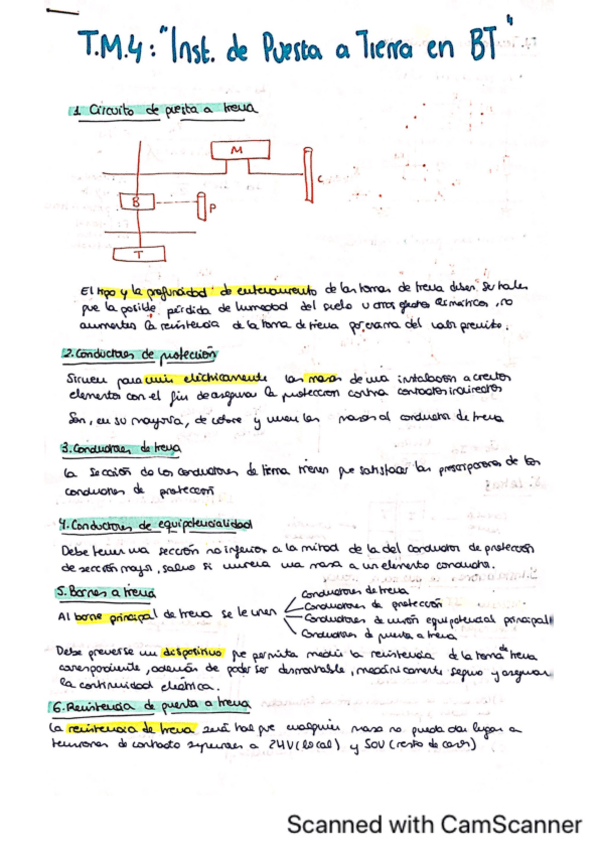 T.M.4: "Inst. de Puesta a Tierra en BT"
1. Circuito de puesta a tierra
M
C
B
P
T
El tipo y la profundidad de enterramiento de las tomas de tierra deben ser tales
que la posible pérdida de humedad del suelo u otros efectos climáticos, no
aumenten la resistencia de la toma de tierra por encima del valor previsto.
2. Conductores de protección
Sirven para unir eléctricamente las masas de una instalación a ciertos
elementos con el fin de asegurar la protección contra contactos indirectos
Son, en su mayoría, de cobre y unen las masas al conductor de tierra
3. Conductores de tierra
La sección de los conductores de tierra tienen que satisfacer las prescripciones de los
conductores de protección
4. Conductores de equipotencialidad
Debe tener una sección no inferior a la mitad de la del conductor de protección
de sección mayor, salvo si uniera una masa a un elemento conductor.
5. Bornes a tierra
Conductores de tierra
Conductores de protección
Al borne principal de tierra se le unen
Conductores de unión equipotencial principal
Conductores de puesta a tierra
Debe preverse un dispositivo que permita medir la resistencia de la toma de tierra
correspondiente, además de poder ser desmontable, mecánicamente seguro y asegurar
la continuidad eléctrica.
6. Resistencia de puesta a tierra
La resistencia de tierra será tal que cualquier masa no pueda dar lugar a
tensiones de contacto superiores a 24V (local) y 50V (resto de casos)
Scanned with CamScanner